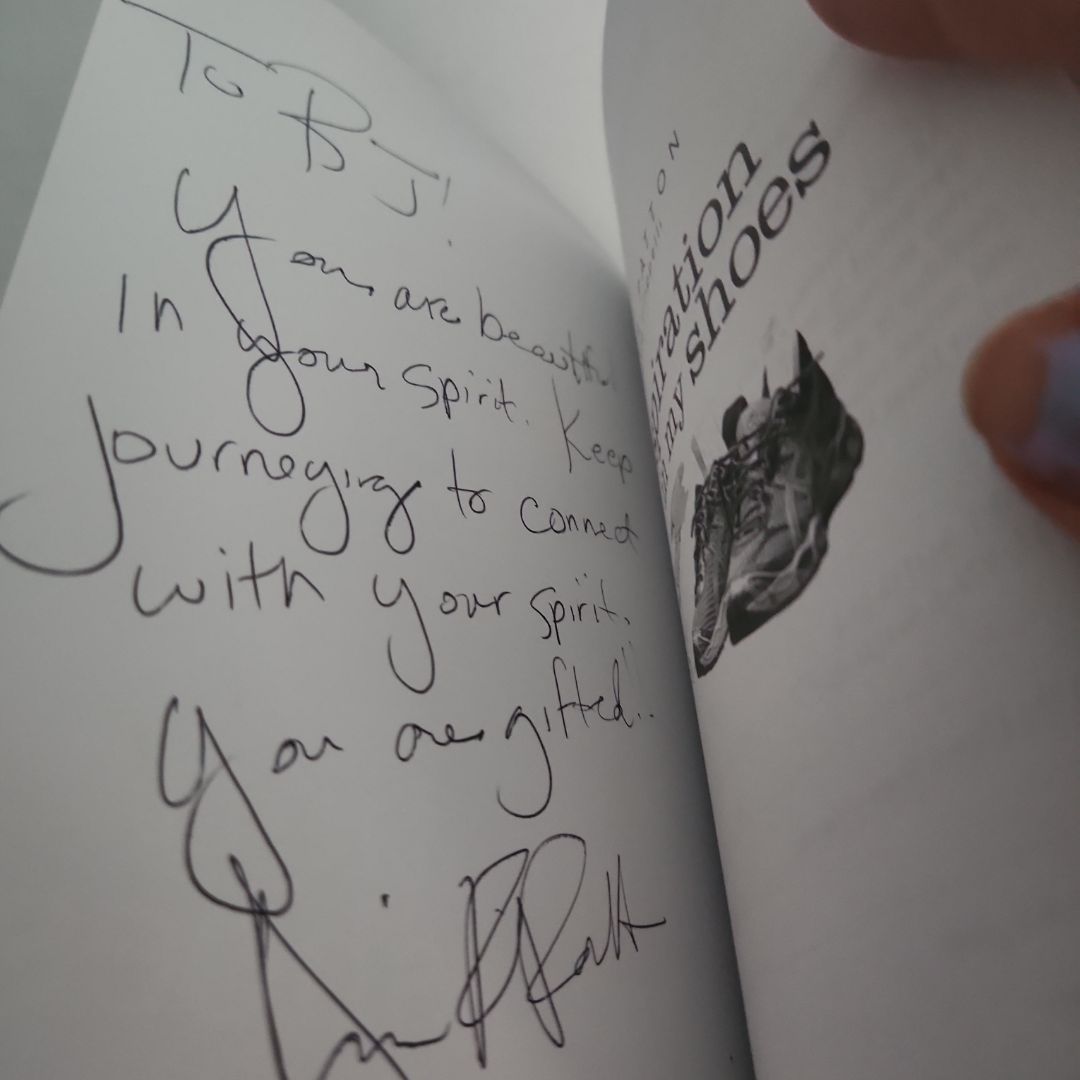 To BJ!
You are beautiful
In your spirit. Keep
Journeying to connect
with your spirit.
You are gifted!!
iration
my shoes